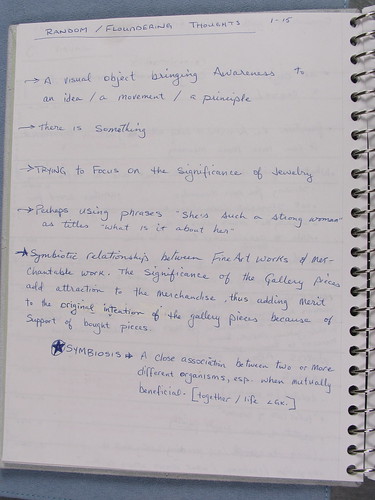 RANDOM / FLOUNDERING THOUGHTS 1-15
→ A visual object bringing Awareness to
an idea / a movement / a principle
→ There is Something
→ TRYING to Focus on the Significance of Jewelry
→ Perhaps using phrases "She's such a strong woman"
as titles "what is it about her"
★ Symbiotic relationship between Fine Art works & Mer-
chantable work. The Significance of the Gallery pieces
add attraction to the merchandise, thus adding Merit
to the original intention of the gallery pieces because of
Support of bought pieces.
★ SYMBIOSIS → A close association between two or more
different organisms, esp. when mutually
beneficial. [together / life <Gk.]